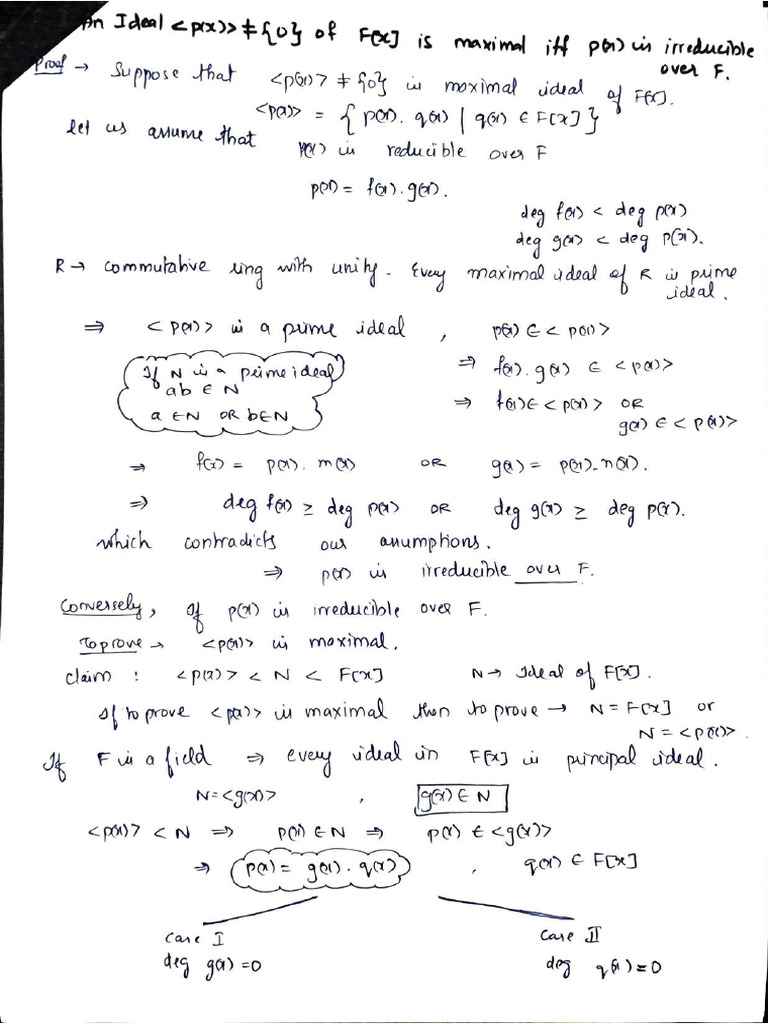 An Ideal <p(x)> ≠ {0} of F[x] is maximal iff p(x) is irreducible over F.
Proof → Suppose that <p(x)> ≠ {0} is maximal ideal of F[x].
<p(x)> = { p(x). q(x) | q(x) ∈ F[x] }
let us assume that p(x) is reducible over F
p(x) = f(x). g(x).
deg f(x) < deg p(x)
deg g(x) < deg p(x).
R → commutative ring with unity. Every maximal ideal of R is prime ideal.
⇒ <p(x)> is a prime ideal , p(x) ∈ <p(x)>
If N is a prime ideal
ab ∈ N
a ∈ N OR b ∈ N
⇒ f(x). g(x) ∈ <p(x)>
⇒ f(x) ∈ <p(x)> OR
g(x) ∈ <p(x)>
⇒ f(x) = p(x). m(x) OR g(x) = p(x). n(x).
⇒ deg f(x) ≥ deg p(x) OR deg g(x) ≥ deg p(x).
which contradicts our assumptions.
⇒ p(x) is irreducible over F.
Conversely, If p(x) is irreducible over F.
To prove → <p(x)> is maximal.
claim : <p(x)> < N < F[x] N → Ideal of F[x].
If to prove <p(x)> is maximal then to prove → N = F[x] or
N = <p(x)>.
If F is a field ⇒ every ideal in F[x] is principal ideal.
N = <g(x)> , g(x) ∈ N
<p(x)> < N ⇒ p(x) ∈ N ⇒ p(x) ∈ <g(x)>
⇒ p(x) = g(x). q(x) , q(x) ∈ F[x]
Case I
deg g(x) = 0
Case II
deg q(x) = 0